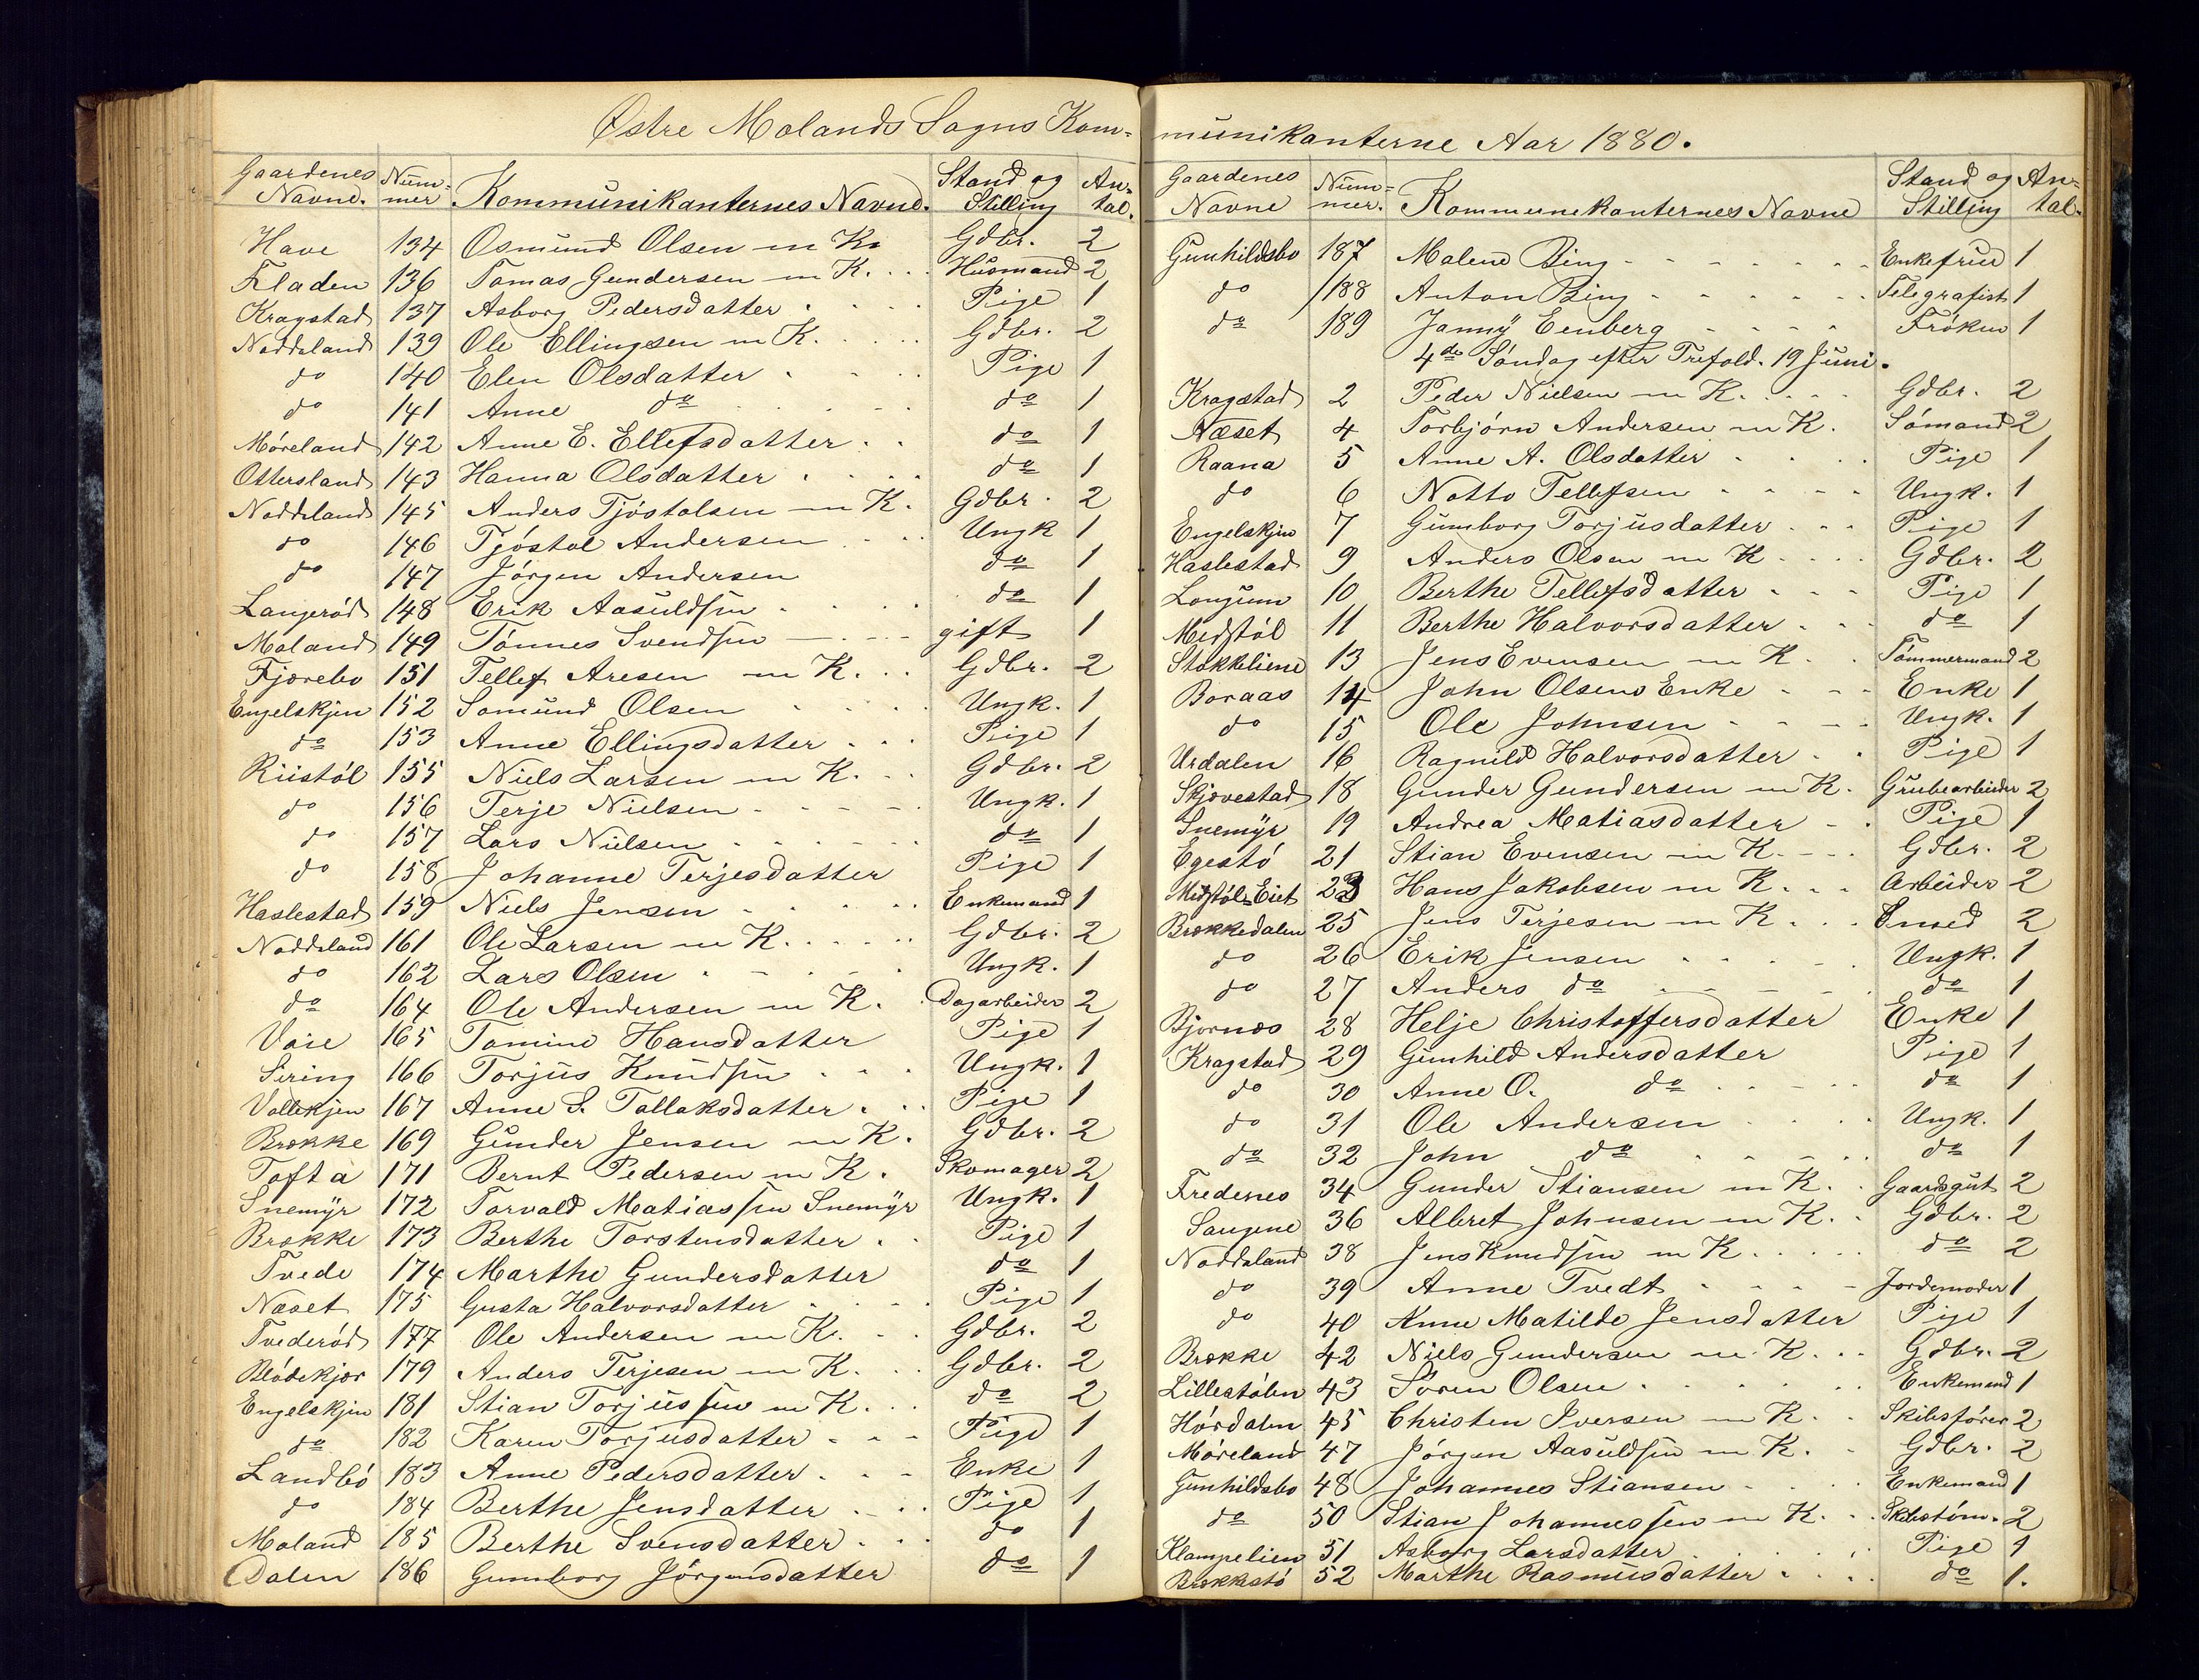 Østre Molands Sogns Kom-
Gaardenes Navne. Num-mer Kommunikanternes Navne. Stand og Stilling An-tal.
Have 134 Osmund Olsen m K. Gdbr. 2
Fladen 136 Tomas Gundersen m K. Husmand 2
Kragstad 137 Asborg Pedersdatter Pige 1
Noddeland 139 Ole Ellingsen m K. Gdbr. 2
do 140 Elen Olsdatter Pige 1
do 141 Anne do do 1
Møreland 142 Anne E. Ellefsdatter do 1
Ottersland 143 Hanna Olsdatter do 1
Noddeland 145 Anders Tjøstolsen m K. Gdbr. 2
do 146 Tjøstol Andersen Ungk 1
do 147 Jørgen Andersen do 1
Langerød 148 Erik Aasuldsen do 1
Moland 149 Tønnes Svendsen gift 1
Fjærebo 151 Tellef Aresen m K. Gdbr. 2
Engelskjen 152 Somund Olsen Ungk. 1
do 153 Anne Ellingsdatter Pige 1
Riistøl 155 Niels Larsen m K. Gdbr. 2
do 156 Terje Nielsen Ungk. 1
do 157 Lars Nielsen do 1
do 158 Johanne Terjesdatter Pige 1
Haslestad 159 Niels Jensen Enkemand 1
Noddeland 161 Ole Larsen m K. Gdbr. 2
do 162 Lars Olsen Ungk. 1
do 164 Ole Andersen m K. Dagarbeider 2
Voie 165 Tomine Hansdatter Pige 1
Sering 166 Torjus Knudsen Ungk. 1
Vallekjen 167 Anne S. Tallaksdatter Pige 1
Brække 169 Gunder Jensen m K. Gdbr. 2
Tofta 171 Bernt Pedersen m K. Skomager 2
Snemyr 172 Torvald Matiassen Snemyr Ungk. 1
Brække 173 Berthe Torstensdatter Pige 1
Tvede 174 Marthe Gundersdatter do 1
Næset 175 Gusta Halvorsdatter Pige 1
Tvederød 177 Ole Andersen m K. Gdbr. 2
Blødekjær 179 Anders Terjesen m K. Gdbr. 2
Engelskjen 181 Stian Torjussen m K. do 2
do 182 Karen Torjusdatter Pige 1
Landbø 183 Anne Pedersdatter Enke 1
do 184 Berthe Jensdatter Pige 1
Moland 185 Berthe Svensdatter do 1
Dalen 186 Gunborg Jørgensdatter do 1
munikanterne Aar 1880.
Gaardenes Navne Num-mer. Kommunekanternes Navne Stand og Stilling An-tal.
Gunhildsbo 187 Malene Bing Enkefrue 1
do 188 Anton Bing Telegrafist 1
do 189 Janny Eenberg Frøken 1
4de Søndag efter Trefold. 19 Juni.
Kragstad 2 Peder Nielsen m K. Gdbr. 2
Næset 4 Torbjørn Andersen m K. Sømand 2
Raana 5 Anne A. Olsdatter Pige 1
do 6 Notto Tellefsen Ungk. 1
Engelskjen 7 Gunborg Torjusdatter Pige 1
Haslestad 9 Anders Olsen m K Gdbr. 2
Longum 10 Berthe Tellefsdatter Pige 1
Midstøl 11 Berthe Halvorsdatter do 1
Stokkeliene 13 Jens Evensen m K Tømmermand 2
Boraas 14 John Olsens Enke Enke 1
do 15 Ole Johnsen Ungk. 1
Urdalen 16 Ragnild Halvorsdatter Pige 1
Skjævestad 18 Gunder Gundersen m K. Grubearbeider 2
Snemyr 19 Andrea Matiasdatter Pige 1
Egestø 21 Stian Evensen m K. Gdbr. 2
Midstøl Eiet 23 Hans Jakobsen m K. Arbeider 2
Brækkedalen 25 Jens Terjesen m K. Smed 2
do 26 Erik Jensen Ungk. 1
do 27 Anders do do 1
Bjornæs 28 Helje Christoffersdatter Enke 1
Kragstad 29 Gunhild Andersdatter Pige 1
do 30 Anne O. do do 1
do 31 Ole Andersen Ungk. 1
do 32 John do do 1
Fredenes 34 Gunder Stiansen m K. Gaardsgut 2
Saugene 36 Albret Johnsen m K. Gdbr. 2
Noddeland 38 Jens Knudsen m K. do 2
do 39 Anne Tvedt Jordemoder 1
do 40 Anne Matilde Jensdatter Pige 1
Brække 42 Niels Gundersen m K. Gdbr. 2
Lillestølen 43 Søren Olsen Enkemand 1
Hørdalen 45 Christen Iversen m K. Skibsfører 2
Møreland 47 Jørgen Aasuldsen m K. Gdbr. 2
Gunhildsbo 48 Johannes Stiansen Enkemand 1
do 50 Stian Johannessen m K. Skibstøm. 2
Klampelien 51 Asborg Larsdatter Pige 1
Brækkestø 52 Marthe Rasmusdatter do 1.